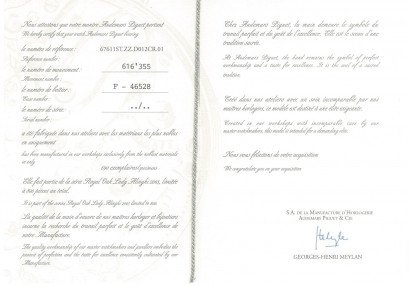 Nous attestons que votre montre Audemars Piguet portant
We hereby certify that your watch Audemars Piguet bearing
le numéro de référence : 67611ST.ZZ.D012CR.01
Reference number
le numéro de mouvement : 616'355
Movement number
le numéro de boîtier : F - 46528
Case number
le numéro de série : ../..
Serial number
a été fabriquée dans nos ateliers avec les matériaux les plus nobles
en uniquement
has been manufactured in our workshops exclusively from the noblest materials
in only
exemplaires/pieces
Elle fait partie de la série Royal Oak Lady Alinghi limitée
au total.
It is part of the series Royal Oak Lady Alinghi limited to
La qualité de la main d'œuvre de nos maîtres horloger et bijoutiers
incarne la recherche du travail parfait et le goût d'excellence
de notre Manufacture.
The quality workmanship of our master watchmakers and jewellers embodies the
pursuit of perfection and the taste for excellence consistently cultivated by our
Manufacture.
Chez Audemars Piguet, la main demeure le symbole du
travail parfait et du goût de l'excellence. Elle est le sceau d'une
tradition sacrée.
At Audemars Piguet, the hand remains the symbol of perfect
workmanship and a taste for excellence. It is the seal of a sacred
tradition.
Créé dans nos ateliers avec un soin incomparable par nos
maîtres horlogers, ce modèle est destiné à une élite exigeante.
Created in our workshops with incomparable care by our
master watchmakers, the model is intended for a demanding elite.
Nous vous félicitons de votre acquisition
We congratulate you on your acquisition
S.A. DE LA MANUFACTURE D'HORLOGERIE
AUDEMARS PIGUET & CIE
GEORGES-HENRI MEYLAN